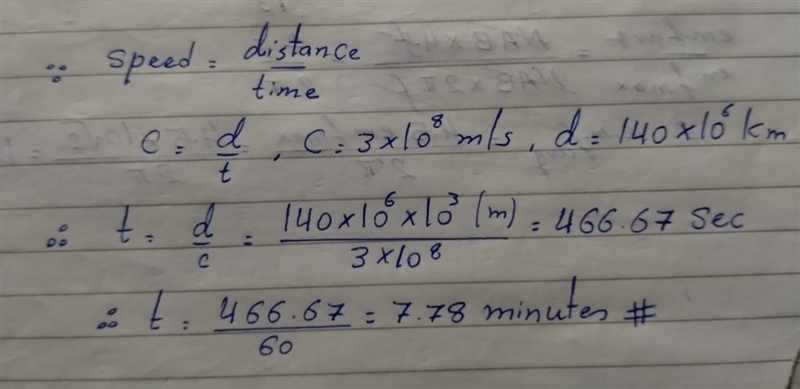 ∵ Speed = distance / time
C = d / t , C = 3 × 10⁸ m/s , d = 140 × 10⁶ km
∴ t = d / c = 140 × 10⁶ × 10³ (m) / 3 × 10⁸ = 466.67 Sec
∴ t = 466.67 / 60 = 7.78 minutes #